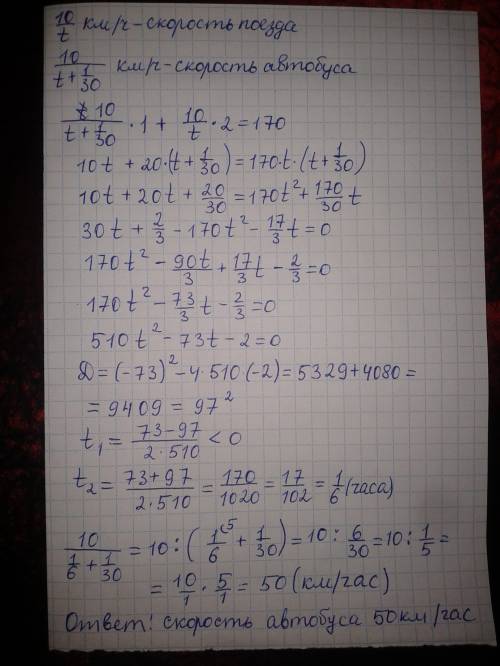 10/t км/ч-скорость поезда
10/(t+1/30) км/ч-скорость автобуса
10/(t+1/30)·1+10/t·2=170
10t+20·(t+1/30)=170·t·(t+1/30)
10t+20t+20/30=170t²+170/30t
30t+2/3-170t²-17/3t=0
170t²-90t/3+17/3t-2/3=0
170t²-73/3t-2/3=0
510t²-73t-2=0
D=(-73)²-4·510·(-2)=5329+4080=
=9409=97²
t₁=(73-97)/(2·510)<0
t₂=(73+97)/(2·510)=170/1020=17/102=1/6(часа)
10/(1/6+1/30)=10:(1/6⁽⁵+1/30)=10:6/30=10:1/5=
=10/1·5/1=50(км/час)
Ответ: скорость автобуса 50км/час